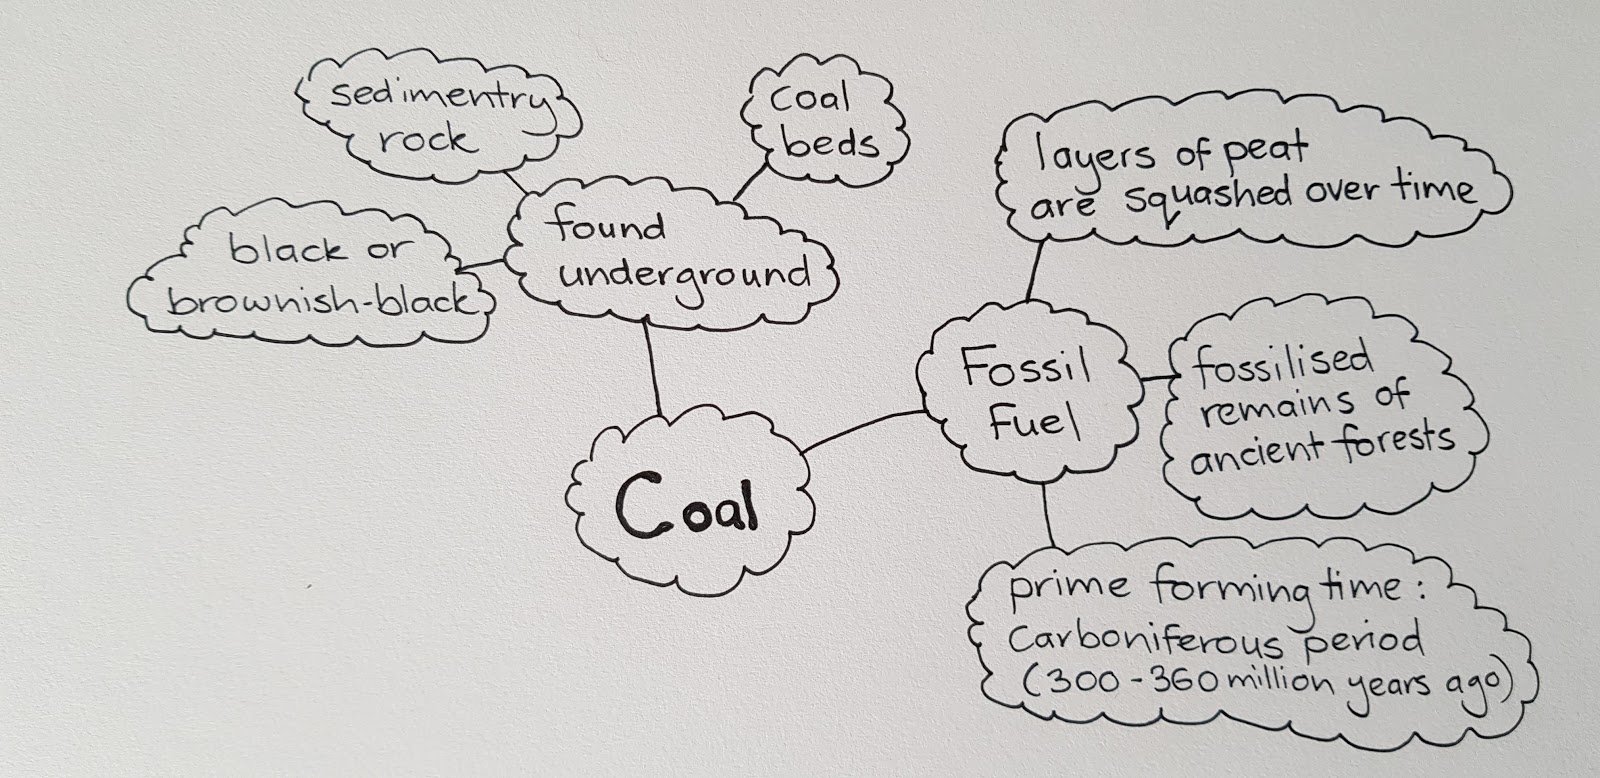 sedimentry
rock
coal
beds
black or
brownish-black
found
underground
layers of peat
are squashed over time
Fossil
Fuel
fossilised
remains of
ancient forests
Coal
prime forming time:
Carboniferous period
(300-360 million years ago)